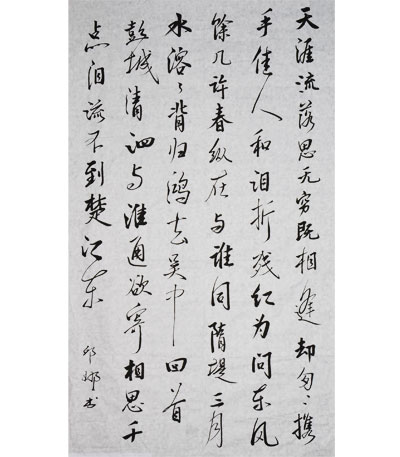 天涯流落思无穷既相逢却匆々携
手佳人和泪折残红为问东风
馀几许春纵在与谁同隋堤三月
水溶々背归鸿去吴中回首
彭城清泗与淮通欲寄相思千
点泪流不到楚江东
邱娜书